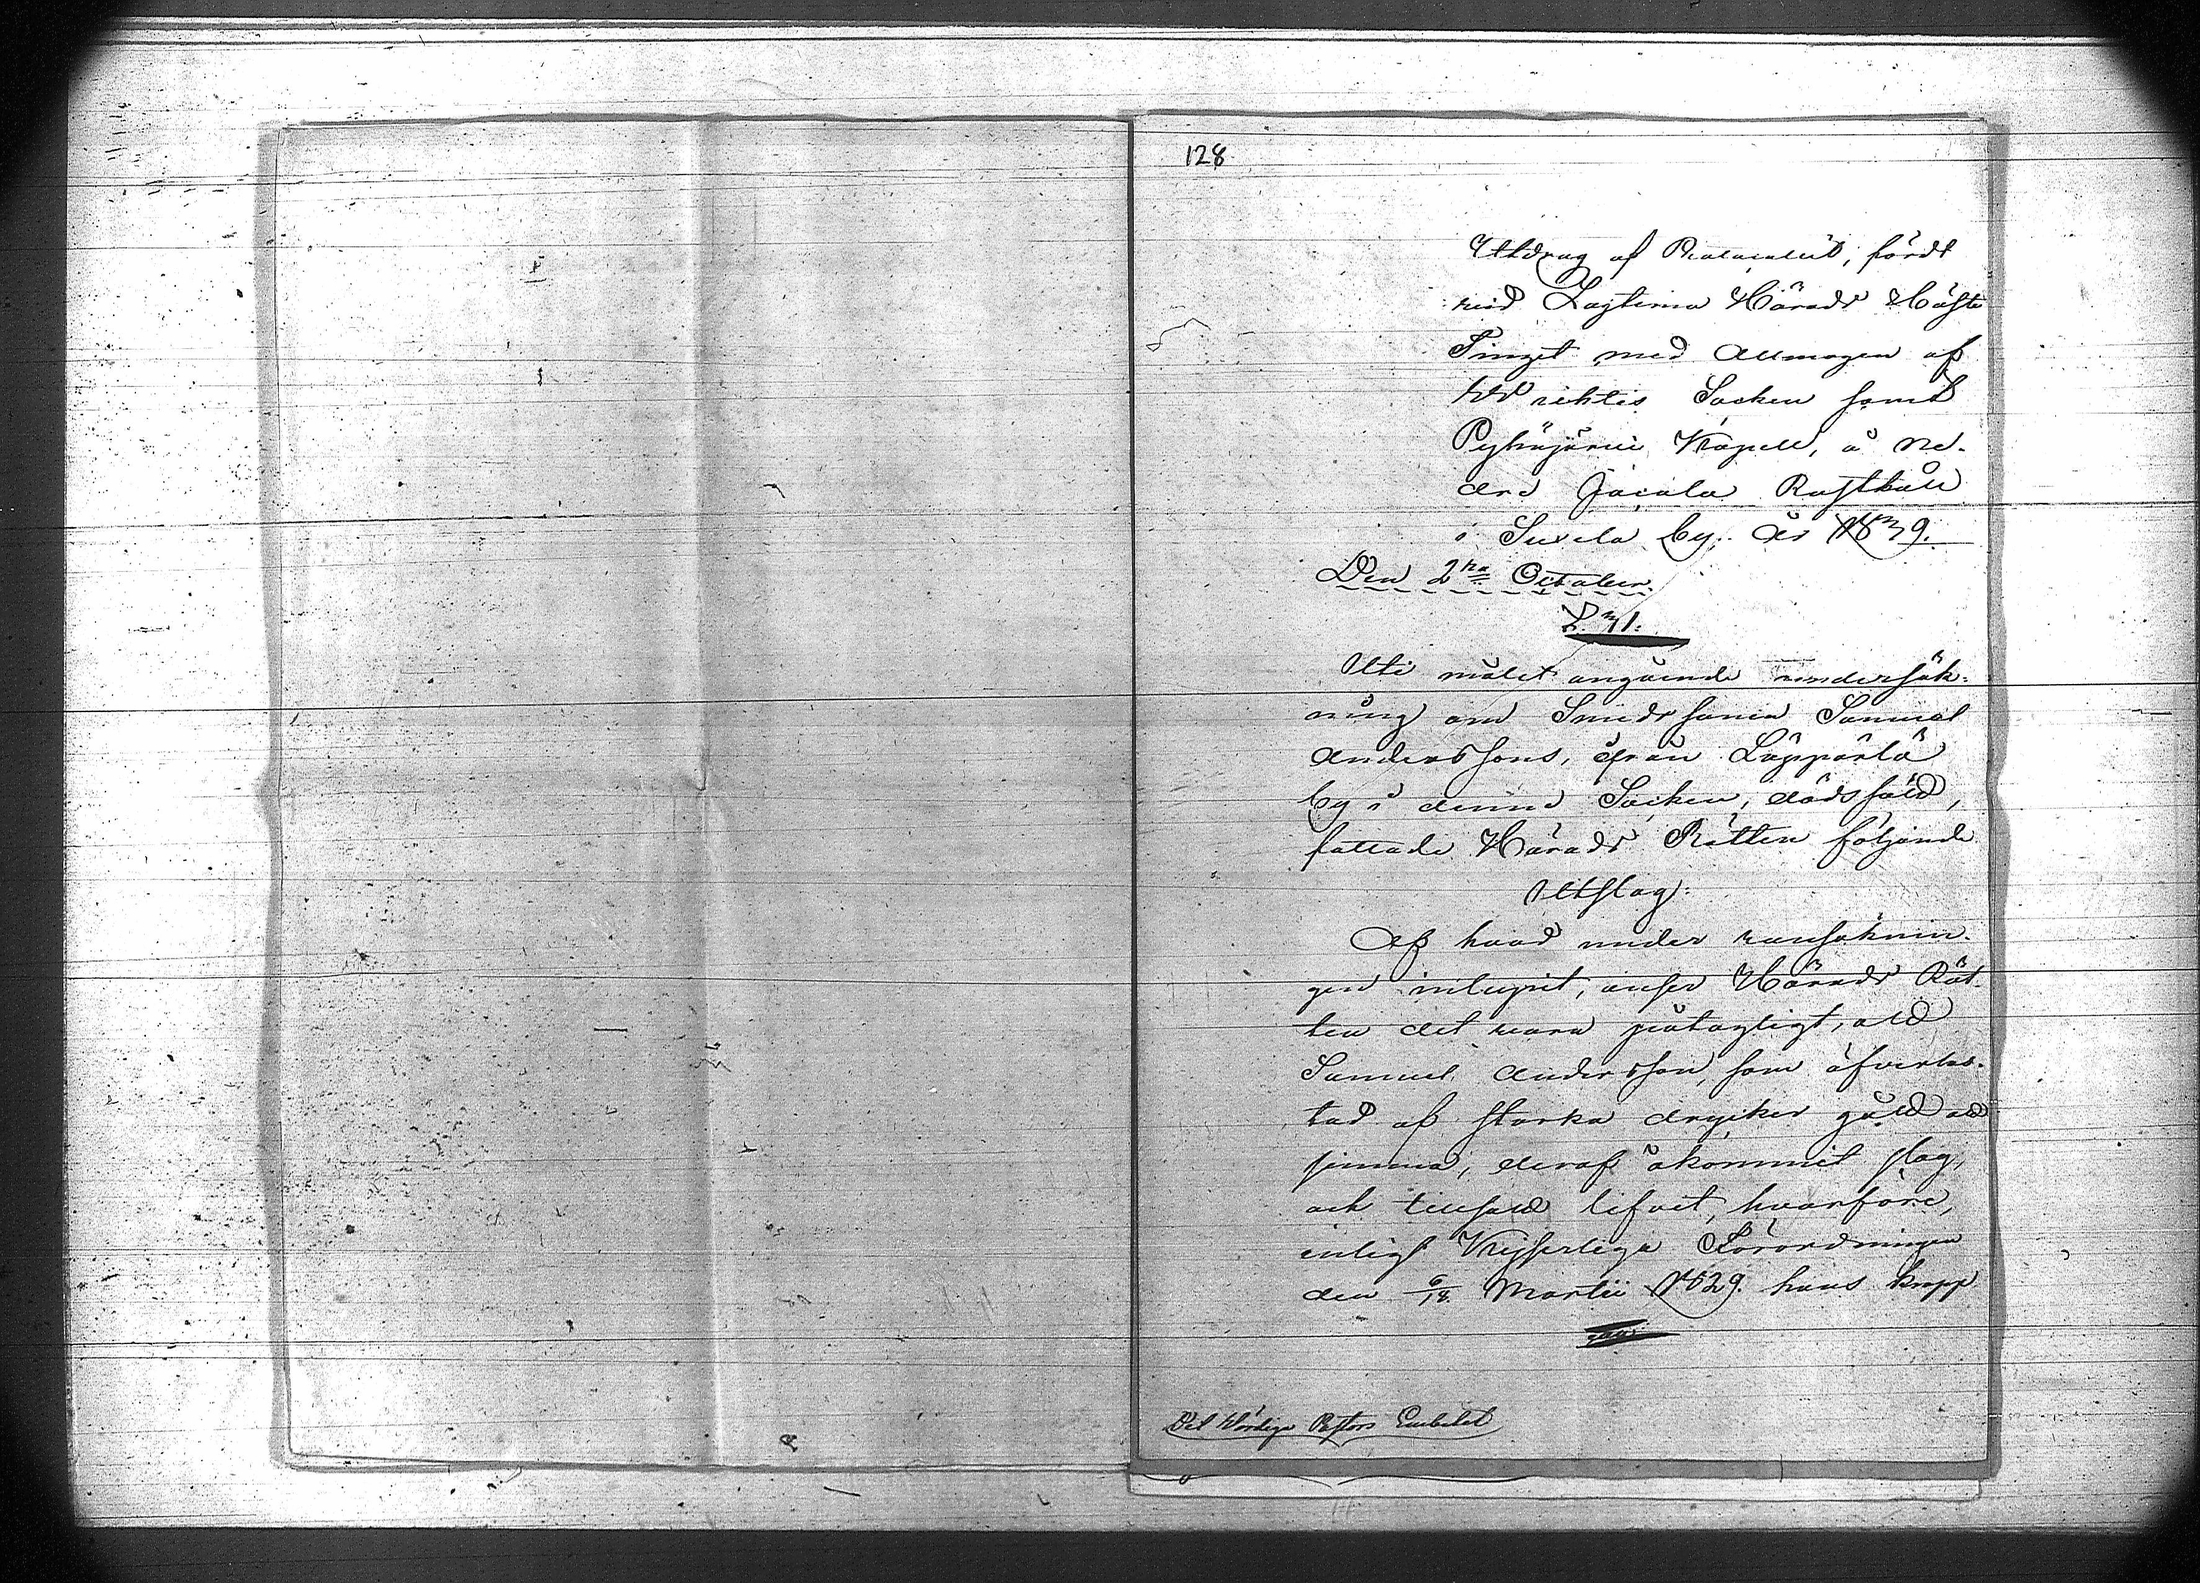 128
Utdrag af Protocollet, fördt
vid Lagtima Härads Höste
Tinget med Allmogen af
Wichtis Socken samt
Pyhäjärvi Kapell, å Ne-
dre Jacala Rusthåll
i Suxela by. år 1839.
Den 2dra October.
§. 31.
Uti målet angående undersök-
ning om Smedssonen Samuel
Anderssons, ifrån Läyxälä
by i denna Socken, dödsfäld,
fattade Härads Rätten följande
Utslag:
Af hvad under ransaknin-
gen inlupit, anser Härads Rät-
ten det vara påtagligt, att
Samuel Andersson, som öfverlas-
tad af starka drycker gått att
simma, deraf åkommit slag,
och tillsatt lifvet, hvarföre,
enligt Kejserliga Förordningen
den 6/18. Martii 1829. hans kropp
Det Wördige Pastors Embetet